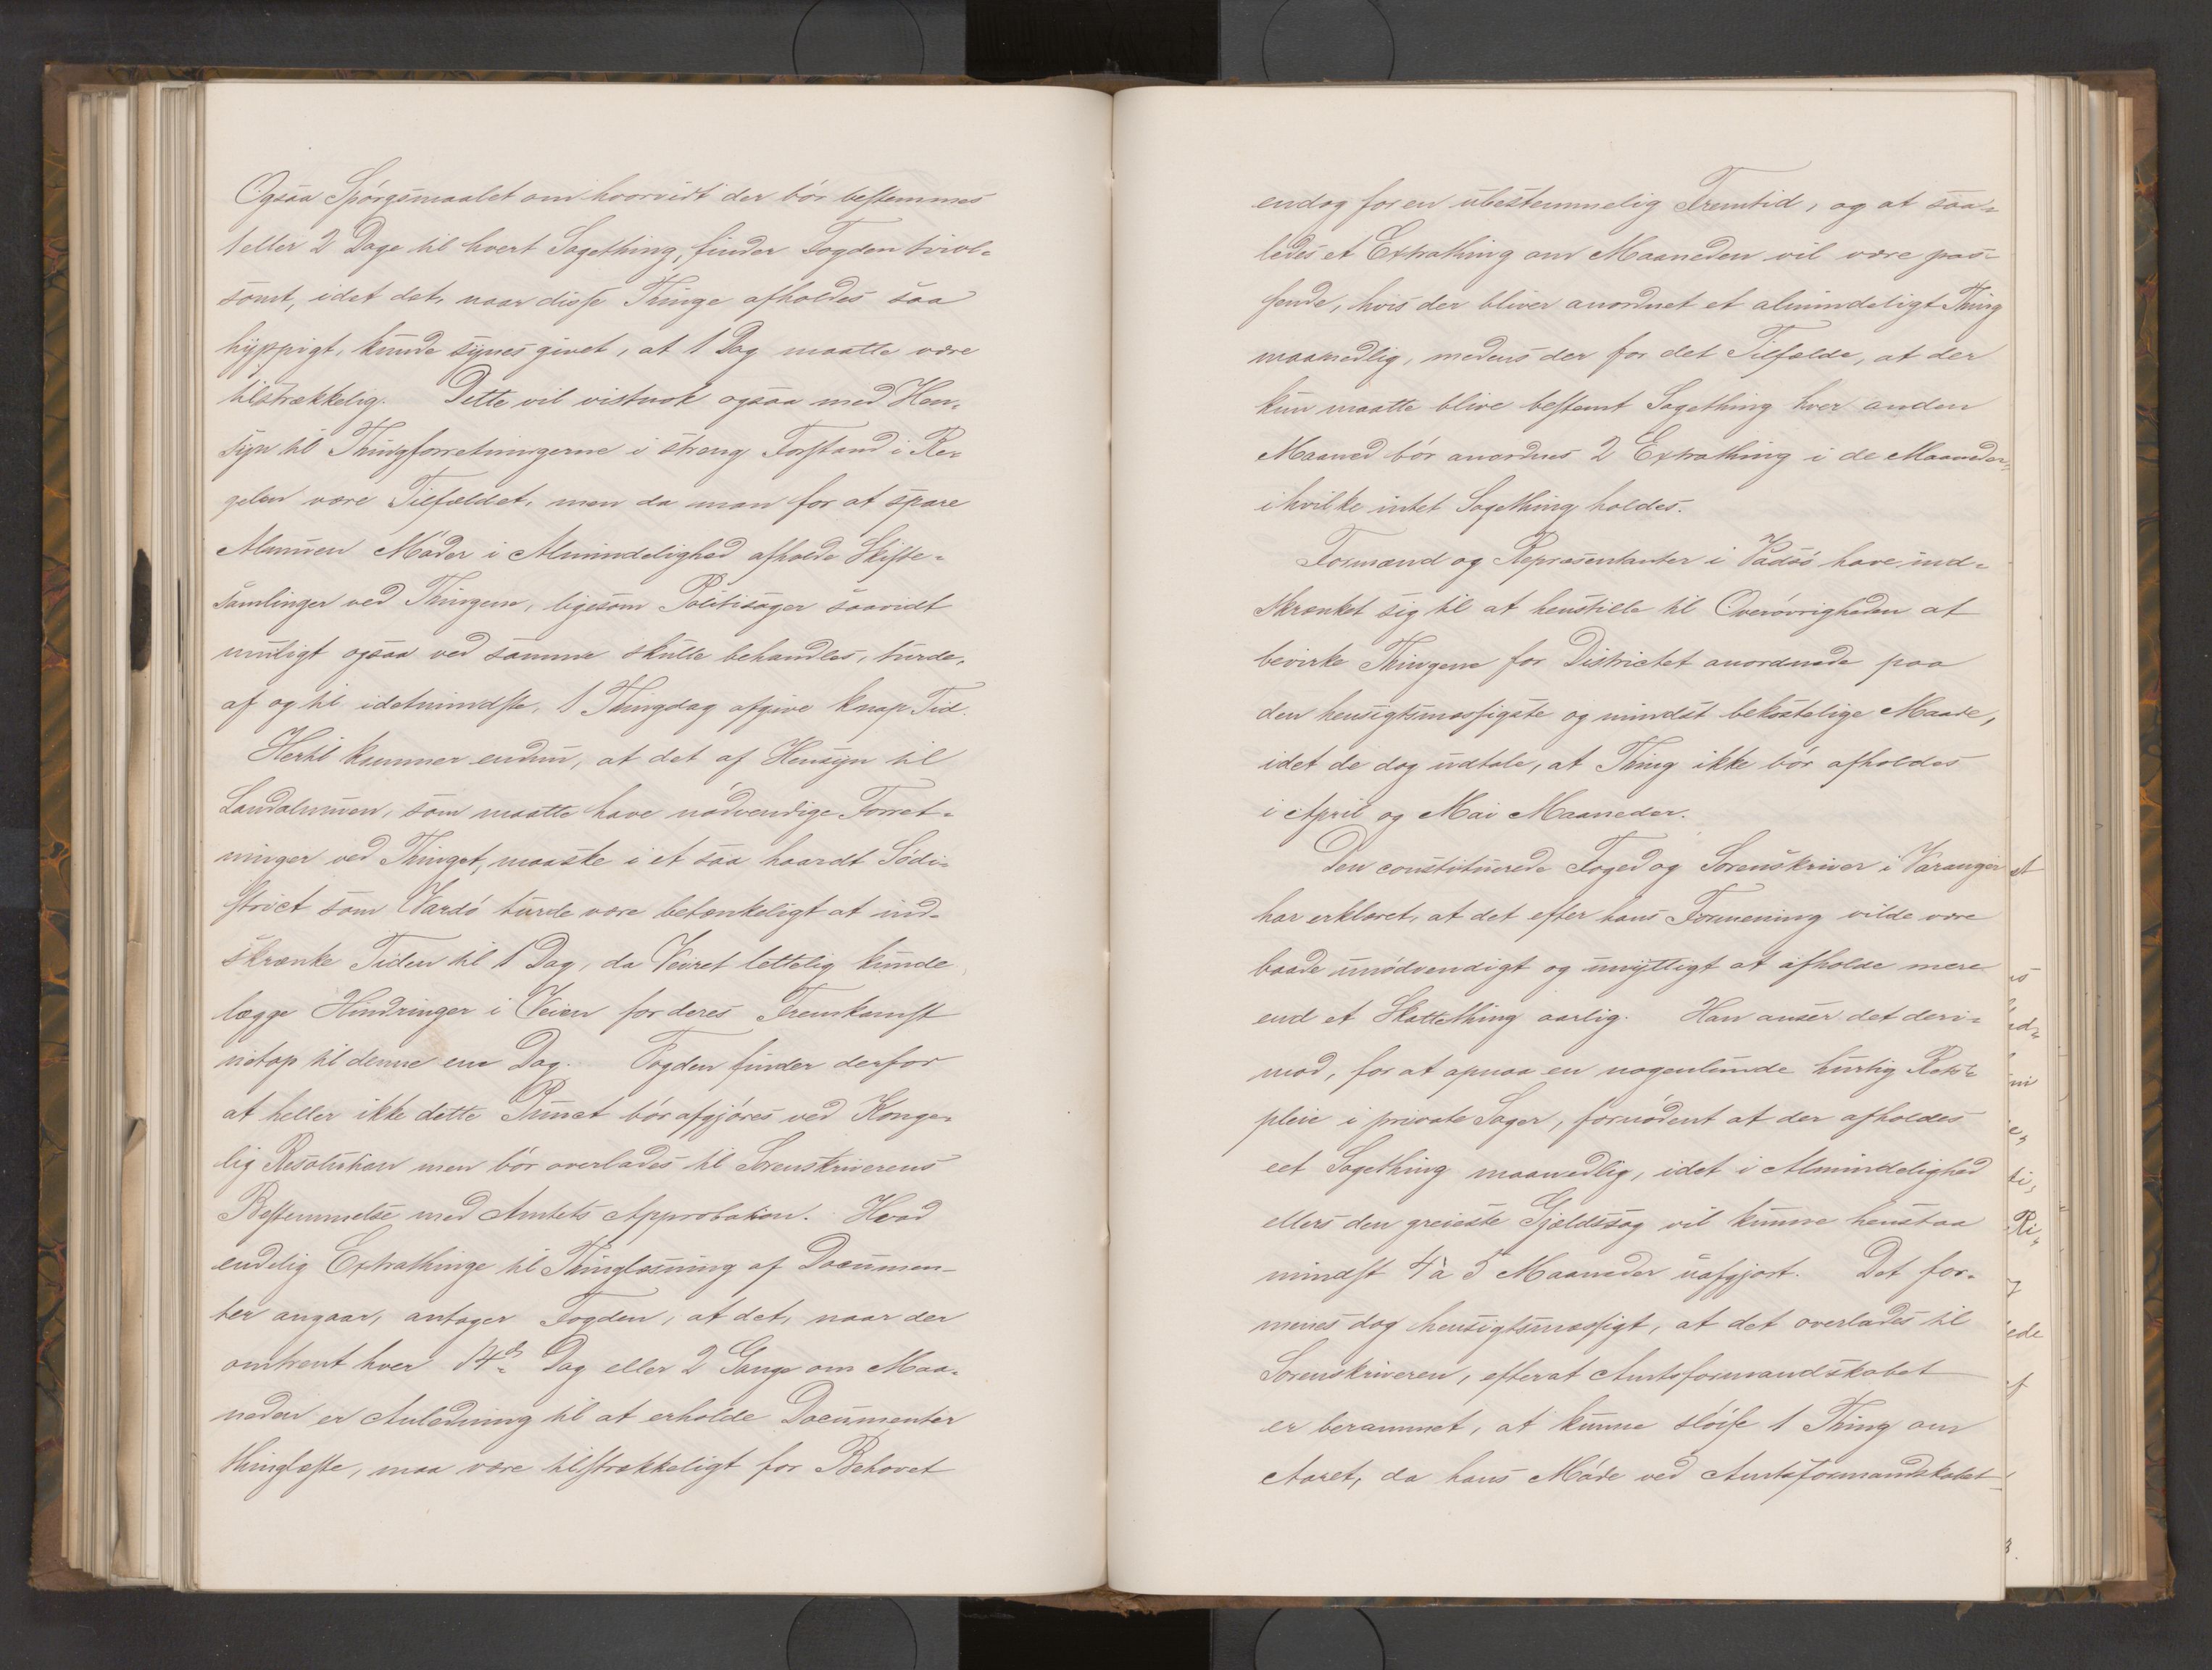 Ogsaa Spórgsmaalet om hvorvidt der bór bestemmes
1 eller 2 Dage til hvert Sagething, finder Fogden tvivl-
somt, idet det, naar disse Thinge afholdes saa
hyppigt, kunde synes givet, at 1 Dag maatte være
tilstrækkelig. Dette vil vistnok ogsaa med Hen-
syn til Thingforretningerne i streng Forstand i Re-
gelen være Tilfældet, men da man for at spare
Almuen Móder i Almindelighed afholde Skifte-
samlinger ved Thingene, ligesom Politisager saavidt
muligt ogsaa ved samme skulle behandles, turde,
af og til idetmindste, 1 Thingdag afgive knap Tid.
Hertil kommer endnu, at det af Hensyn til
Landalmuen, som maatte have nódvendige Forret-
ninger ved Thinget, maaske i et saa haardt Södi-
strict som Vardó turde være betænkeligt at ind-
skrænke Tiden til 1 Dag, da Veiret lettelig kunde
lægge Hindringer i Veien for deres Fremkomst
netop til denne ene Dag. Fogden finder derfor
at heller ikke dette Punct bór afgjóres ved Konge-
lig Resolution men bór overlades til Sorenskriverens
Bestemmelse med Amtets Approbation. Hvad
endelig Extrathinge til Thinglæsning af Documen-
ter angaar, antager Fogden, at det, naar der
omtrent hver 14de Dag eller 2 Gange om Maa-
neden er Anledning til at erholde Documenter
thinglæste, maa være tilstrækkeligt for Behovet
endog for en ubestemmelig Fremtid, og at saa-
ledes et Extrathing om Maaneden vil være pas-
sende, hvis der bliver anordnet et almindeligt Thing
maanedlig, medens der for det Tilfælde, at der
kun maatte blive bestemt Sagething hver anden
Maaned bór anordnes 2 Extrathing i de Maaneder,
i hvilke intet Sagething holdes.
Formænd og Repræsentanter i Vadsó have ind-
skrænket sig til at henstille til Overóvrigheden at
bevirke Thingene for Districtet anordnede paa
den hensigtsmæssigste og mindst bekostelige Maade,
idet de dog udtale, at Thing ikke bór afholdes
i April og Mai Maaneder.
Den constituerede Foged og Sorenskriver i Varanger
har erklæret, at det efter hans Formening vilde være
baade unódvendigt og unyttigt at afholde mere
end et Skattething aarlig. Han anser det deri-
mod, for at opnaa en nogenlunde hurtig Rets-
pleie i private Sager, fornódent at der afholdes
eet Sagething maanedlig, idet i Almindelighed
ellers den greieste Gjældssag vil kunne henstaa
mindst 4 à 5 Maaneder uafgjort. Det for-
menes dog hensigtsmæssigt, at det overlades til
Sorenskriveren, efterat Amtsformandskabet
er berammet, at kunne slóife 1 Thing om
Aaret, da hans Móde ved Amtsformandskabet